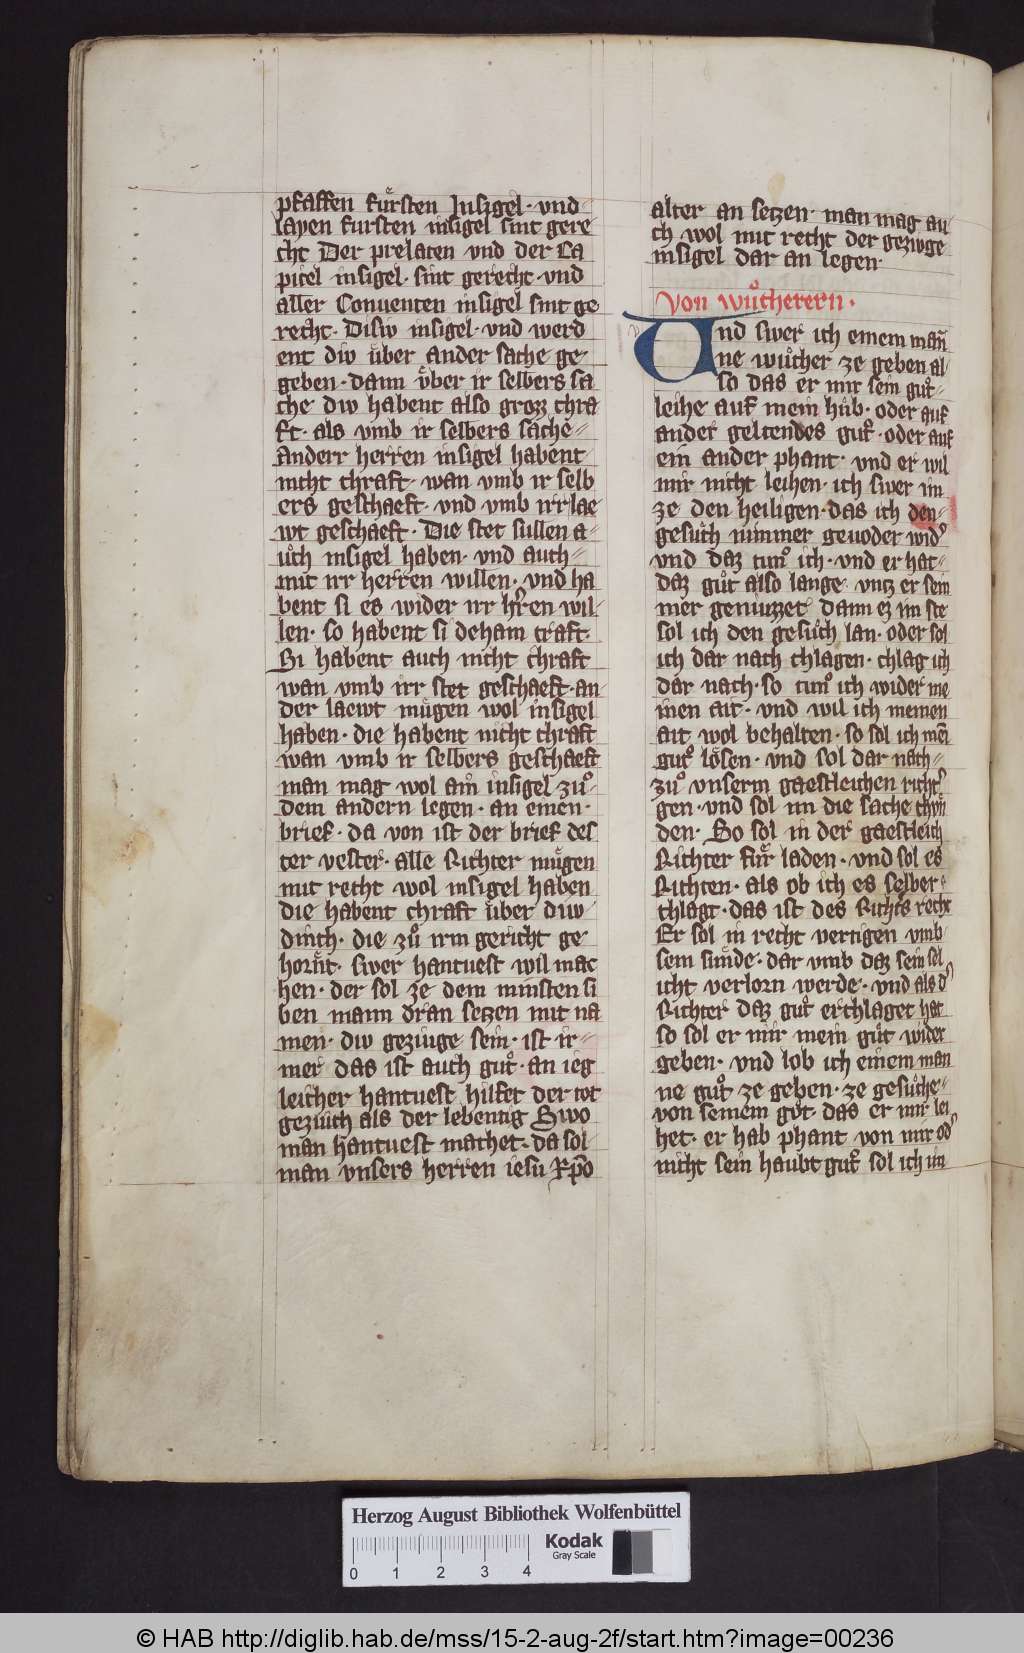 pfaffen fuͤrsten Insigel · vnd
layen fursten insigel sint gere
cht Der prelaten vnd der Ca
pitel insigel · sint gerecht · vnd
aller Conuenten insigel sint ge
recht · Disiv insigel · vnd werd
ent div uͤber ander sache ge
geben · dann vͤber ir selbers sa
che div habent also grozz chra
ft · als vmb ir selbers sache
Anderr herren insigel habent
nicht chraft · wan vmb ir selb
ers geschaeft · vnd vmb irr lae
wt geschaeft · Die stet sullen a
uͦch insigel haben · vnd auch
mit irr herren willen · vnd ha
bent si es wider irr hr̄en wil
len · so habent si dehain craft ·
Si habent auch nicht chraft
wan vmb irr stet geschaeft · an
der laewt muͤgen wol insigel
haben · die habent nicht chraft
wan vmb ir selbers geschaeft
man mag wol ain insigel zuͦ
dem andern legen · an einen ·
brief · da von ist der brief des
ter vester · alle Richter muͤgen
mit recht wol insigel haben
die habent chraft uͤber div
dinch · die zuͦ irm gericht ge
hornt · swer hantuest wil mac
hen · der sol ze dem minsten si
ben mann dran setzen mit na
men · div gezivge sein · ist ir
mer das ist auch guͦt · an ieg
leicher hantuest hilfet der tot
gezivch als der lebentig Swo
man hantuest machet · da sol
man vnsers herren iesu Xp̄o
alter an setzen · man mag au
ch wol mit recht der gezivge
insigel dar an legen ·
Von wuͦcherern ·
v
Vnd swer ich einem man̄
ne wuͦcher ze geben al
so das er mir sein guͦt
leihe auf mein huͦb · oder auf
ander geltendes guͦt · oder auf
ein ander phant · vnd er wil
mir nicht leihen · ich swer im
ze den heiligen · das ich den
gesuͦch nimmer geuoder wid'
vnd daz tuͦn ich · vnd er hat
daz guͦt also lange vntz er sein
mer genuzzet dann ez im ste
sol ich den gesuͦch lan · oder sol
ich dar nach chlagen · chlag ich
dar nach · so tuͦn ich wider me
inen ait · vnd wil ich meinen
ait wol behalten · so sol ich mei
guͦt loͤsen · vnd sol dar nach
zuͦ vnserm gaestleichen richt'
gen · vnd sol im die sache chvn
den · So sol in der gaestleich
Richter fuͤr laden · vnd sol es
Richten · als ob ich es selber
chlagt · das ist des Richt's recht
Er sol in recht vertigen vmb
sein suͤnde · dar vmb daz sein sel
icht verlorn werde · vnd als d'
Richter daz guͦt erchlaget hat
so sol er mir mein guͦt wider
geben · vnd lob ich einem man
ne guͦt ze geben · ze gesuͦche
von seinem guͦt das er mir lei
het · er hab phant von mir od'
nicht sein haubt guͦt sol ich im
Herzog August Bibliothek Wolfenbüttel
Kodak
Gray Scale
0 1 2 3 4
© HAB http://diglib.hab.de/mss/15-2-aug-2f/start.htm?image=00236